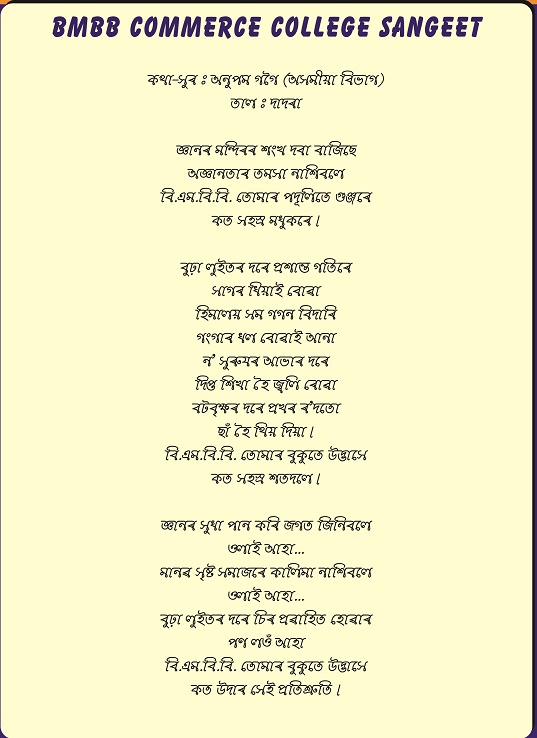 BMBB COMMERCE COLLEGE SANGEET
কথা-সুৰ ঃ অনুপম গগৈ (অসমীয়া বিভাগ)
তাল ঃ দাদৰা
জ্ঞানৰ মন্দিৰৰ শংখ দবা বাজিছে
অজ্ঞানতাৰ তমসা নাশিবলে
বি.এম.বি.বি. তোমাৰ পদূলিতে গুঞ্জৰে
কত সহস্ৰ মধুকৰে।
বুঢ়া লুইতৰ দৰে প্ৰশান্ত গতিৰে
সাগৰ ধিয়াই বোৱা
হিমালয় সম গগন বিদাৰি
গংগাৰ ধল বোৱাই আনা
ন' সুৰুযৰ আভাৰ দৰে
দিপ্ত শিখা হৈ জ্বলি ৰোৱা
বটবৃক্ষৰ দৰে প্ৰখৰ ৰ'দতো
ছাঁ হৈ থিয় দিয়া।
বি.এম.বি.বি. তোমাৰ বুকুতে উদ্ভাসে
কত সহস্ৰ শতদলে।
জ্ঞানৰ সুধা পান কৰি জগত জিনিবলে
ওলাই আহা...
মানৱ সৃষ্ট সমাজৰে কালিমা নাশিবলে
ওলাই আহা...
বুঢ়া লুইতৰ দৰে চিৰ প্ৰৱাহিত হোৱাৰ
পণ লওঁ আহা
বি.এম.বি.বি. তোমাৰ বুকুতে উদ্ভাসে
কত উদাৰ সেই প্ৰতিশ্ৰুতি।